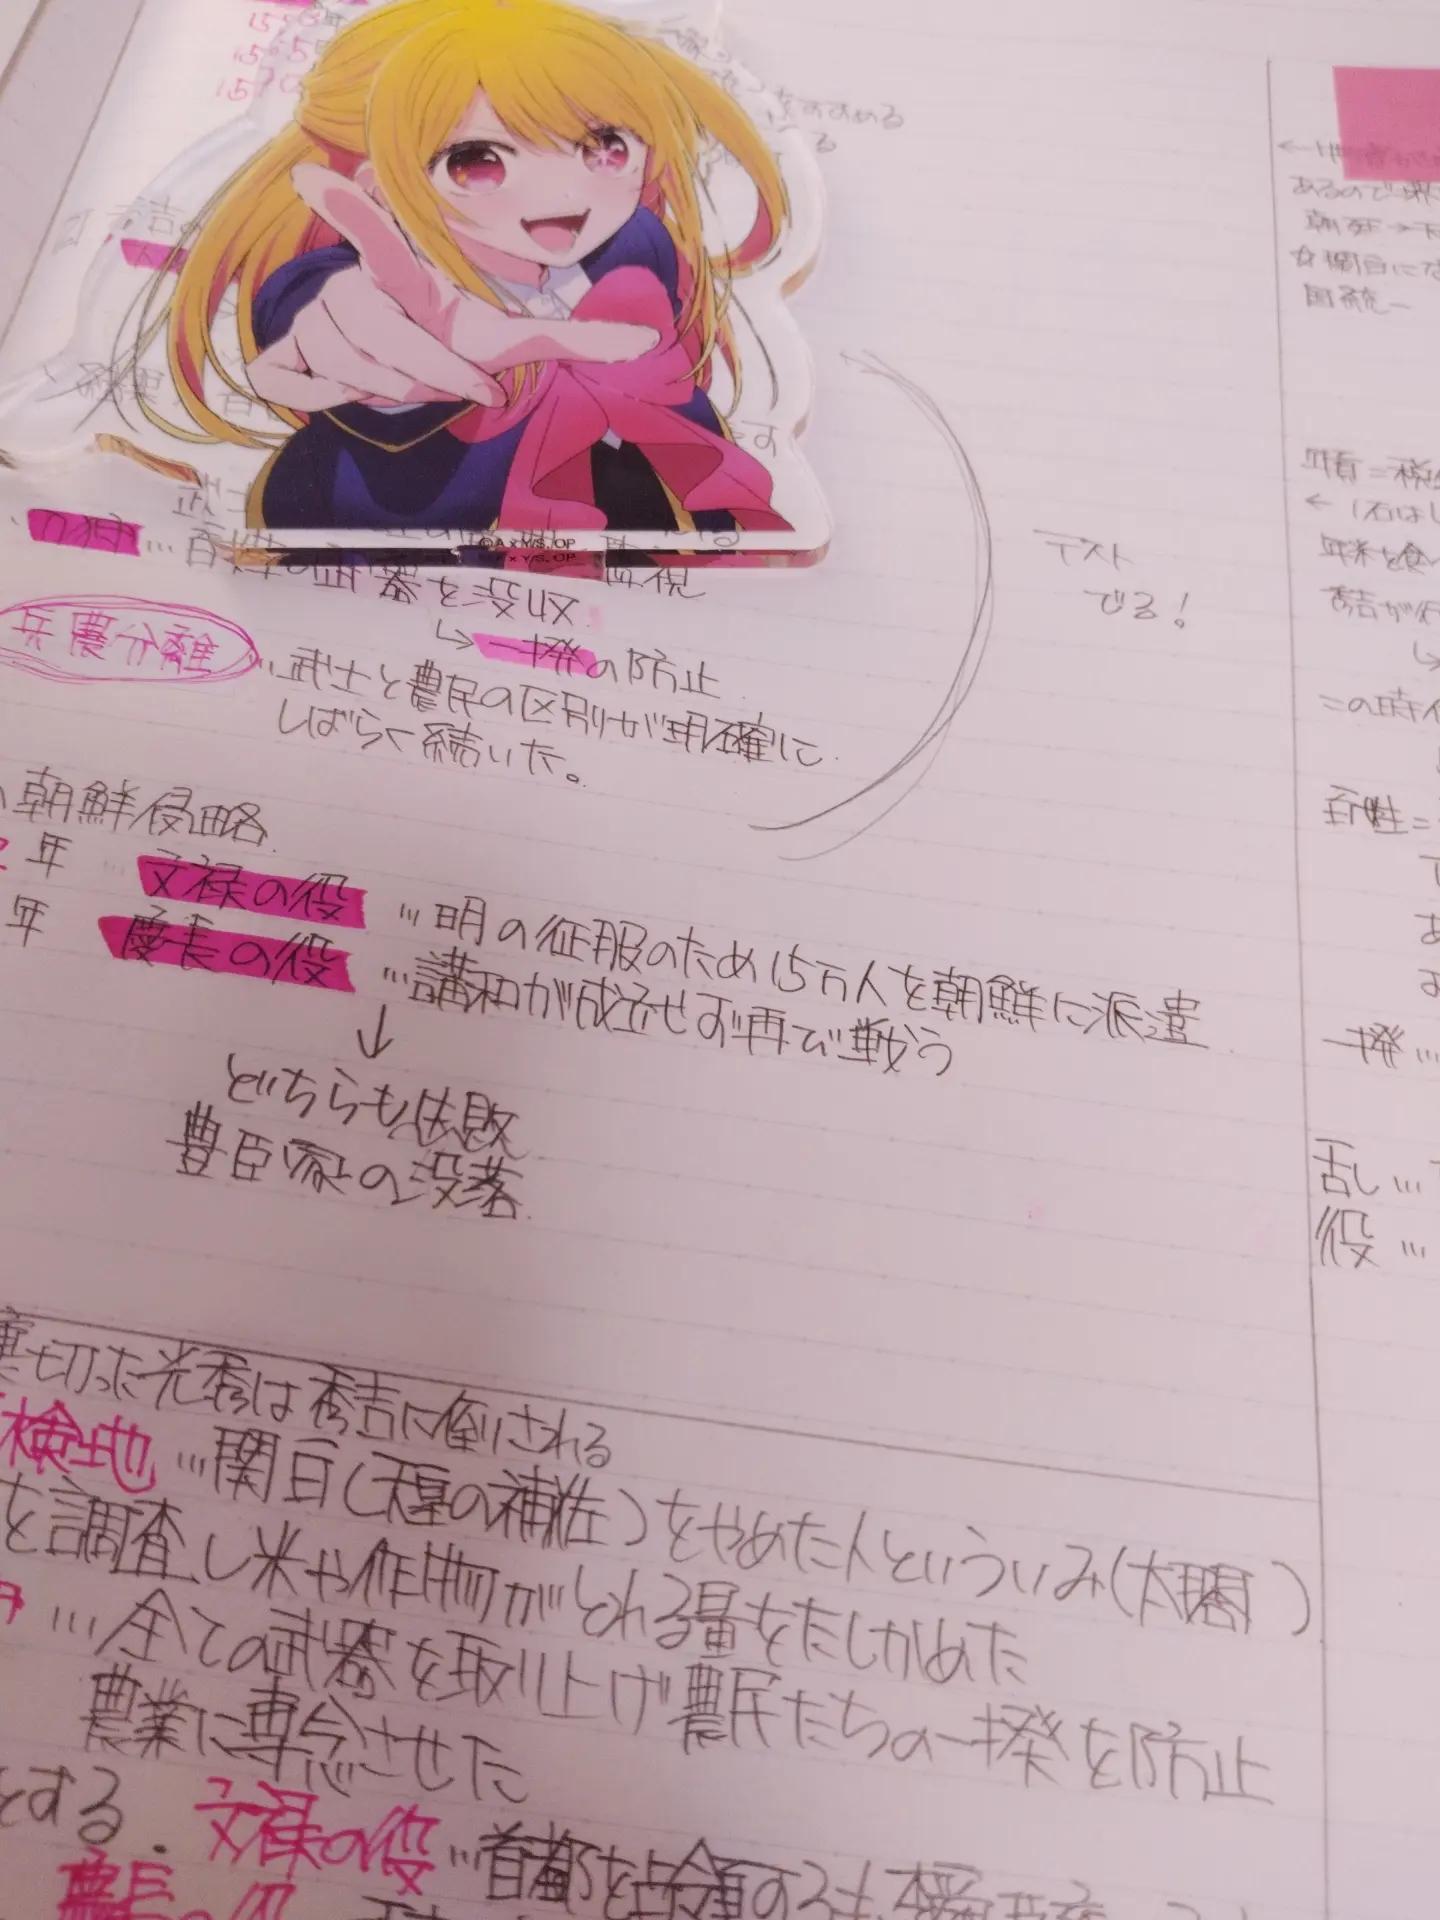 をすすめる
る
結果
刀狩…百姓の武器を没収
→一揆の防止
兵農分離…武士と農民の区別が明確に
しばらく続いた。
©A×Y/S, OP
テスト
でる!
朝鮮侵略
年…文禄の役…明の征服のため15万人を朝鮮に派遣
年 慶長の役…講和が成立せず再び戦う
↓
どちらも失敗
豊臣家の没落
裏切った光秀は秀吉に倒される
検地…関白(天皇の補佐)をやめた人といういみ(太閤)
を調査し米や作物がとれる量をたしかめた
…全ての武器を取り上げ農民たちの一揆を防止
農業に専念させた
とする.文禄の役…首都を占領するも
慶長の役
あるので
関白にな
国統一
年貢=税
←1石は
年米を食べ
秀吉が
この時代
百姓=
一揆…
乱し…
役…